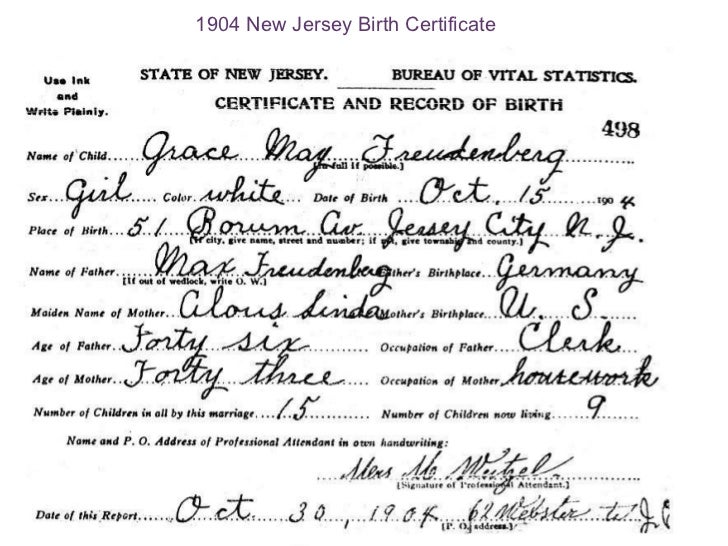 1904 New Jersey Birth Certificate
Use Ink and Write Plainly.
STATE OF NEW JERSEY. BUREAU OF VITAL STATISTICS.
CERTIFICATE AND RECORD OF BIRTH
498
Name of Child Grace May Freudenberg
[In full if possible.]
Sex Girl Color white Date of Birth Oct. 15 1904
Place of Birth 51 Borum Av Jersey City N. J.
[If city, give name, street and number; if not, give township and county.]
Name of Father Max Freudenberg Father's Birthplace Germany
[If out of wedlock, write O. W.]
Maiden Name of Mother Mother's Birthplace U. S.
Age of Father Forty six Occupation of Father Clerk
Age of Mother Forty three Occupation of Mother housework
Number of Children in all by this marriage 15 Number of Children now living 9
Name and P. O. Address of Professional Attendant in own handwriting:
M. Weitzel
[Signature of Professional Attendant.]
Date of this Report Oct 30, 1904 62 Webster
[P. O. address.]